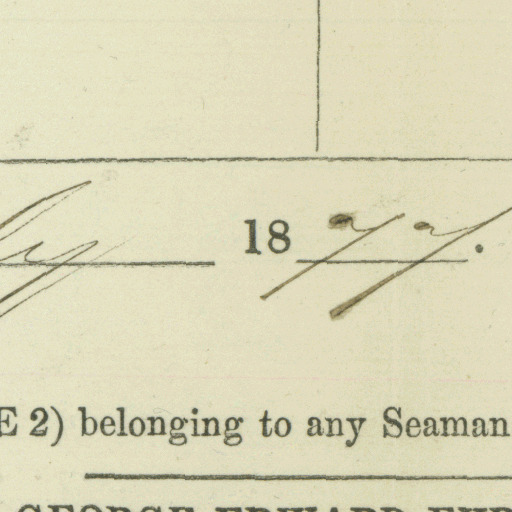 1877.
E 2) belonging to any Seaman
GEORGE EDWARD EYR